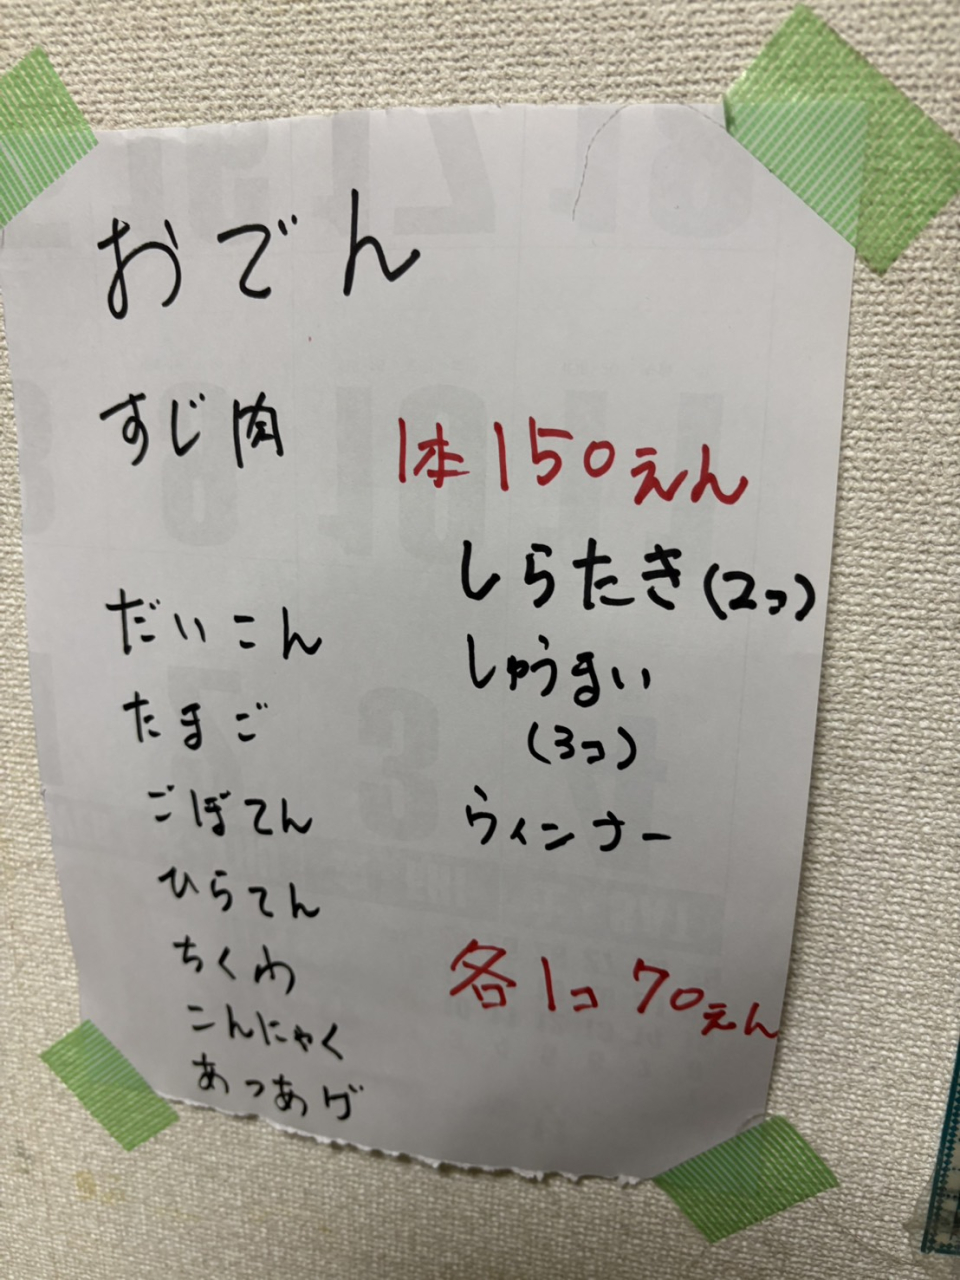 おでん
すじ肉 1本150えん
だいこん
たまご
ごぼてん
ひらてん
ちくわ
こんにゃく
あつあゲ
しらたき(2コ)
しゅうまい
(3コ)
ウィンナー
各1コ 70えん